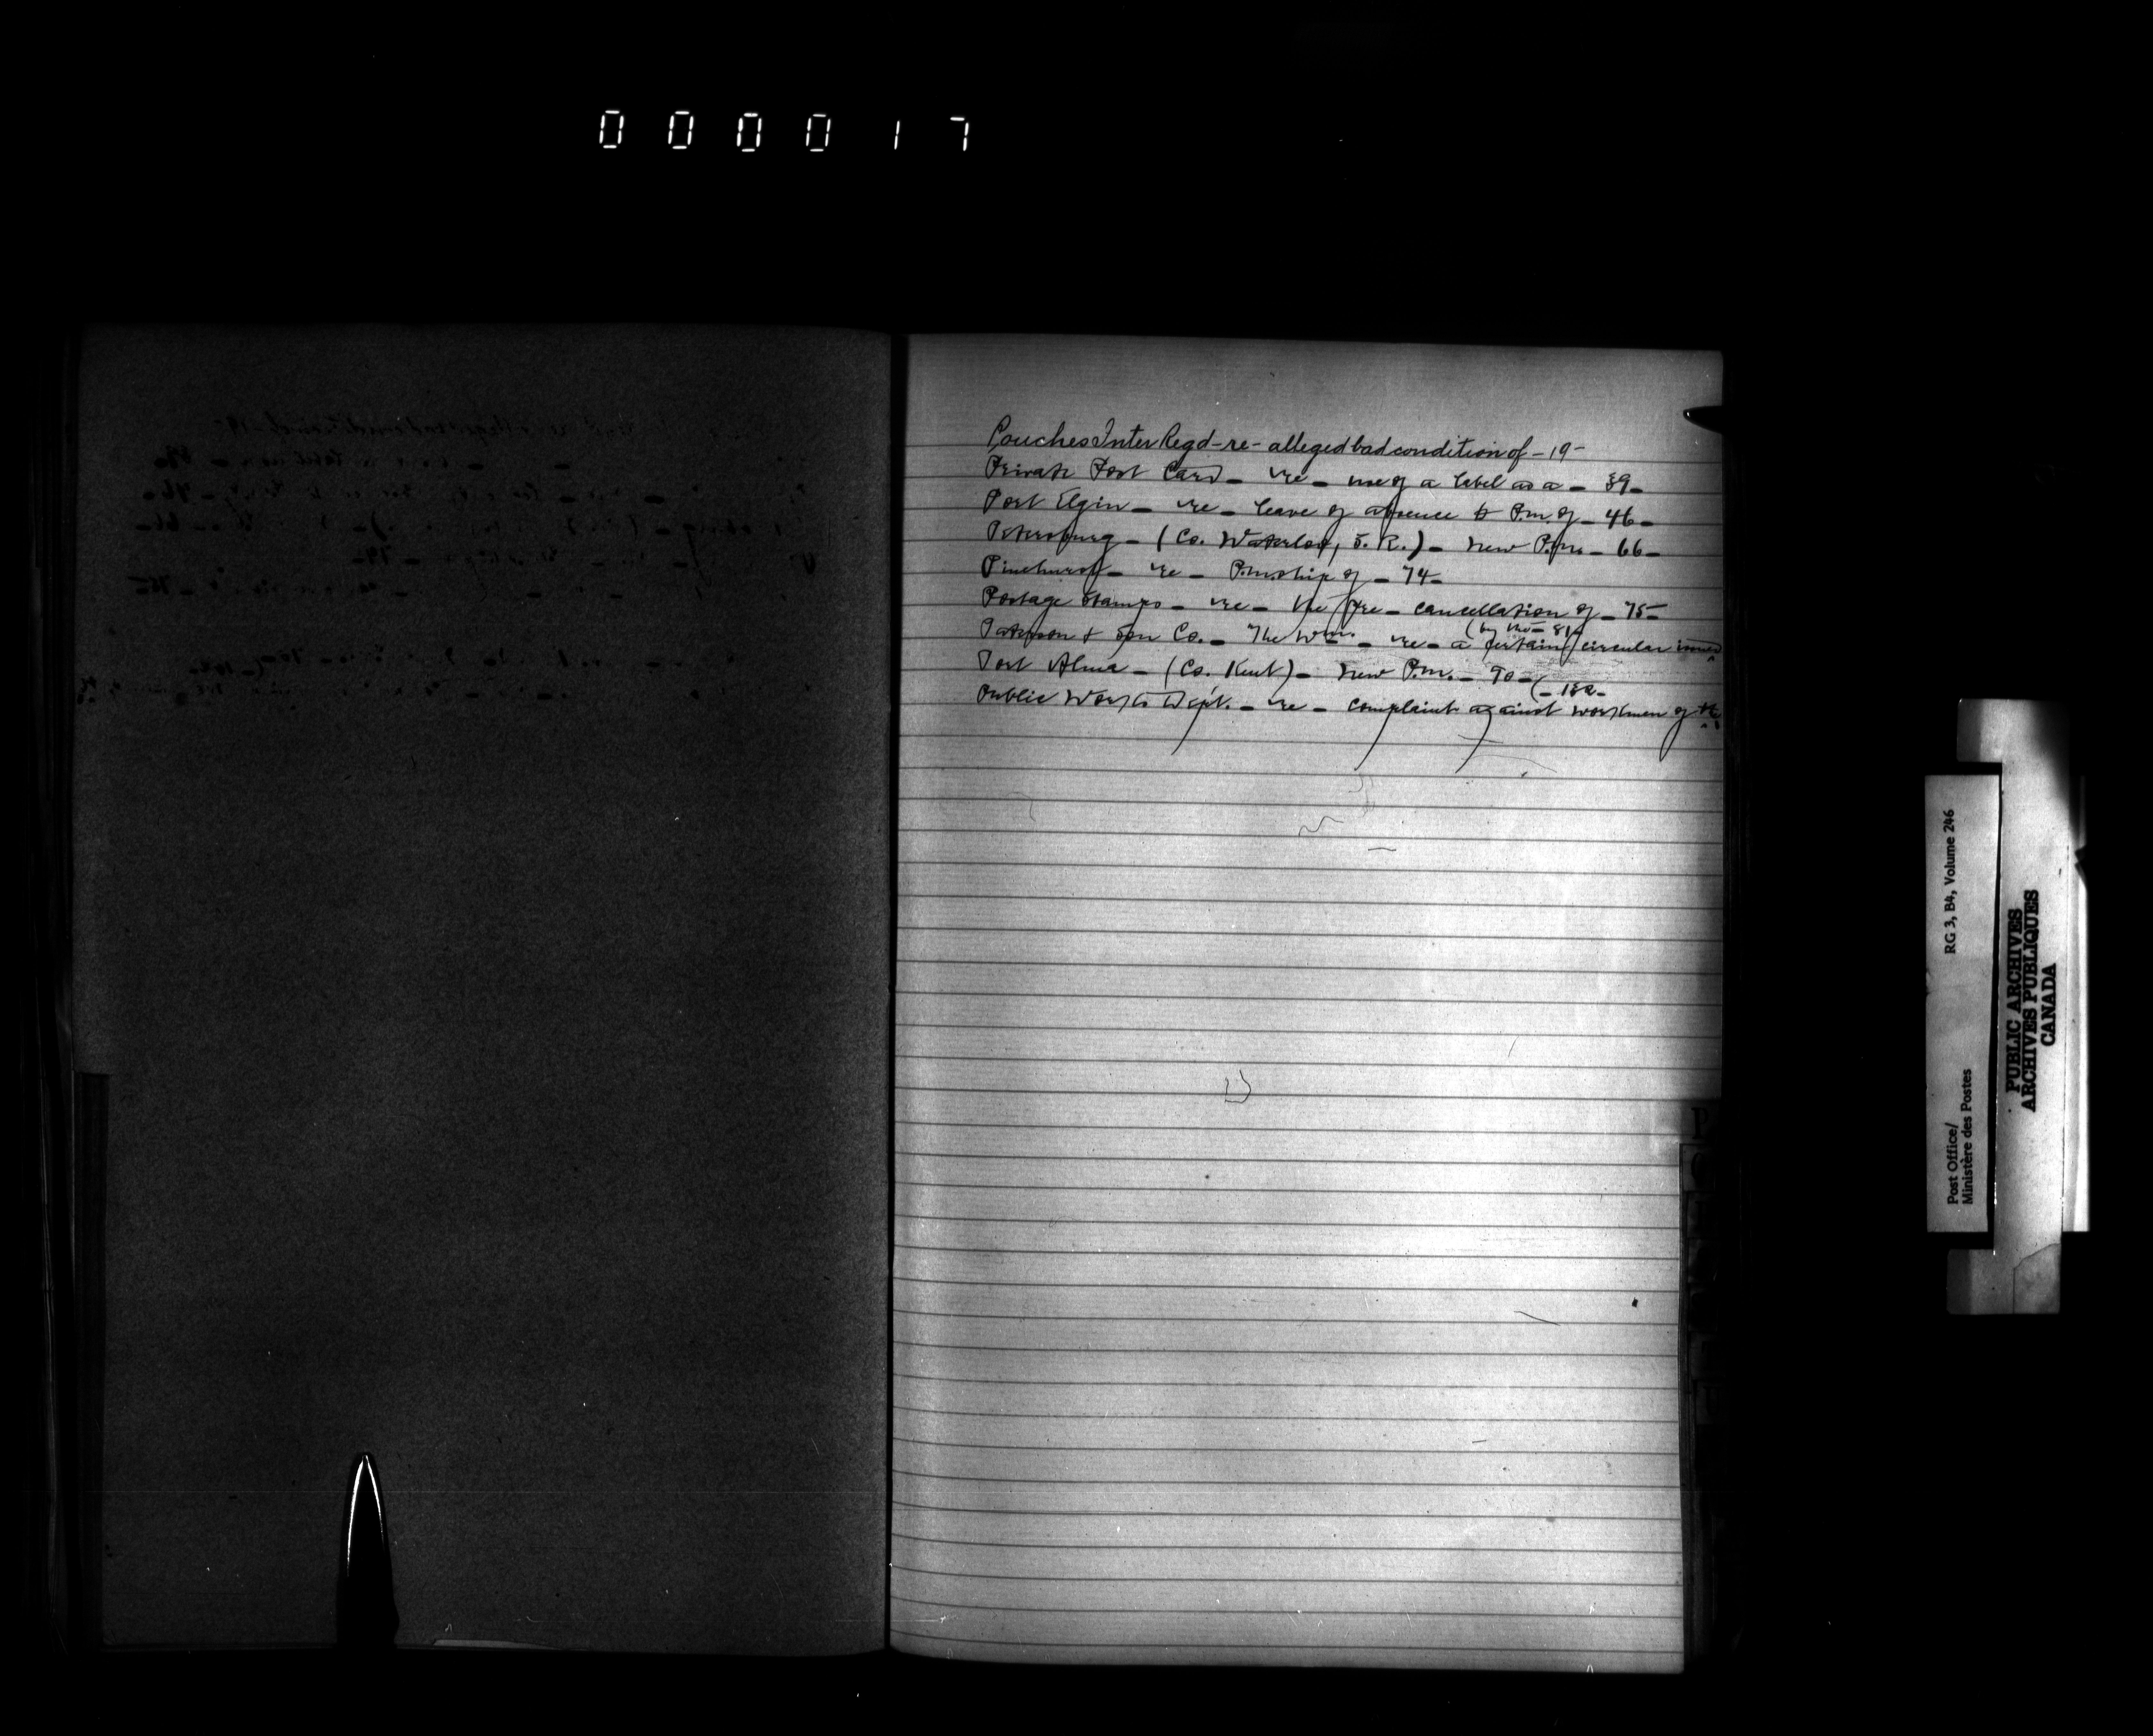 000017
Pouches Inter Regd - re - alleged bad condition of - 19 -
Private Post Card - re - use of a label as a - 39 -
Port Elgin - re - leave of absence to P.m. of - 46 -
Petersburg - (Co. Waterloo, S. R.) - new P.m. - 66 -
Pinehurst - re - P.m.ship of - 74 -
Postage Stamps - re - the pre-cancellation of - 75 -
(by the - 81 -
Paterson & Son Co. - The Wm. - re - a certain circular issued
Port Alma - (Co. Kent) - new P.m. - 90 -
Public Works Dept. - re - complaint against workmen of the
P
RG 3, B4, Volume 246
Post Office/
Ministère des Postes
PUBLIC ARCHIVES
ARCHIVES PUBLIQUES
CANADA